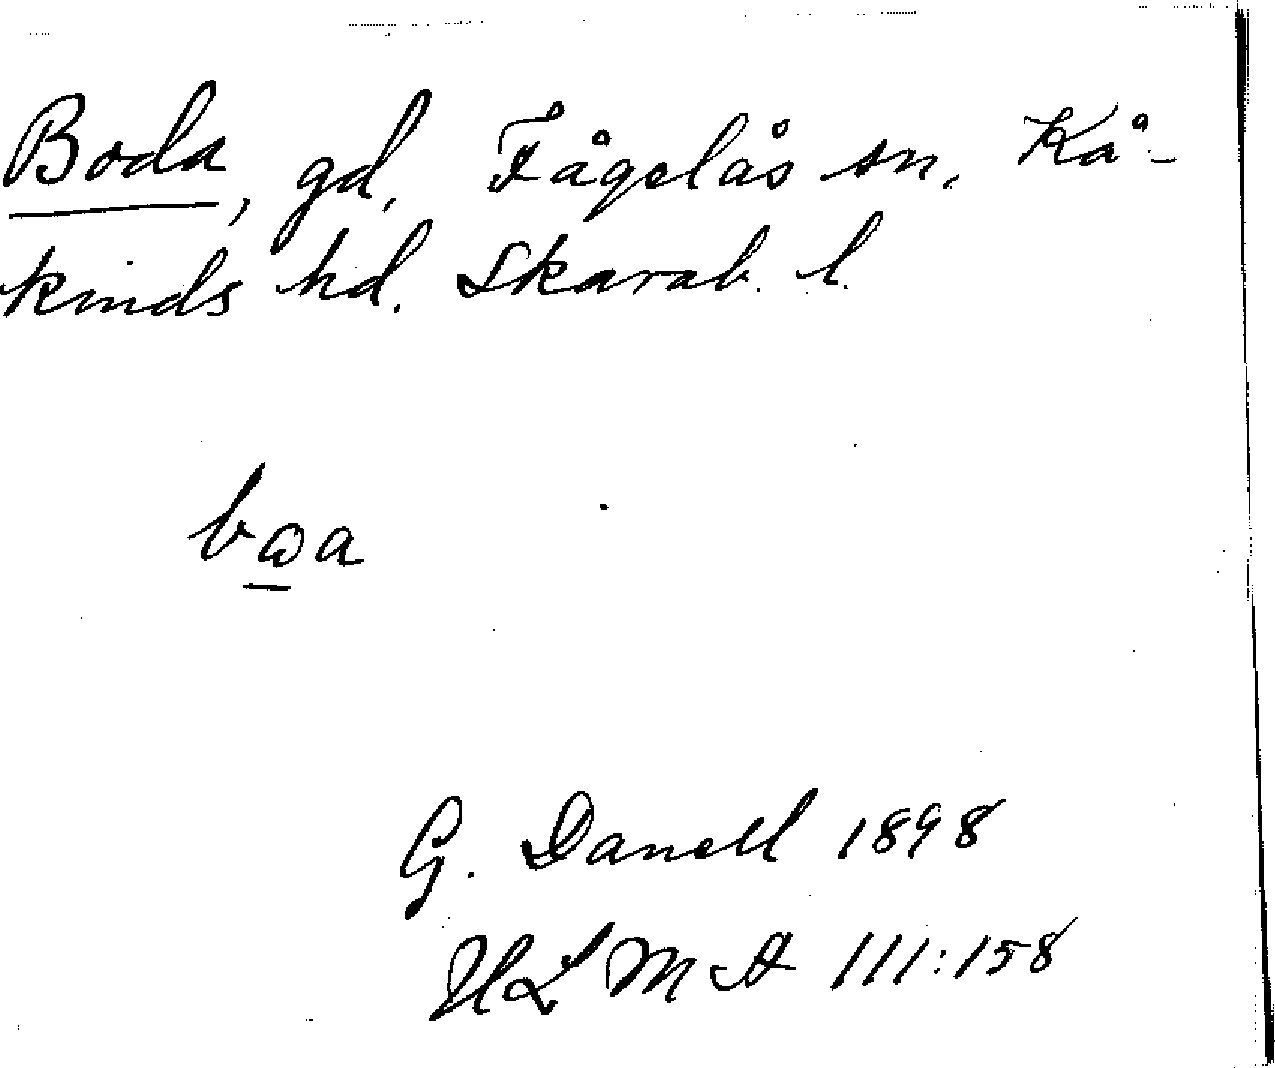 Boda, gd, Fågelås sn, Kå-
kinds hd. Skarab. l.
bⱺa
G. Danell 1898
ULMA 111:158